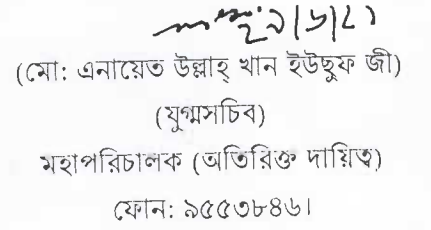 (মো: এনায়েত উল্লাহ্ খান ইউছুফ জী)
(যুগ্মসচিব)
মহাপরিচালক (অতিরিক্ত দায়িত্ব)
ফোন: ৯৫৫৩৮৪৬।